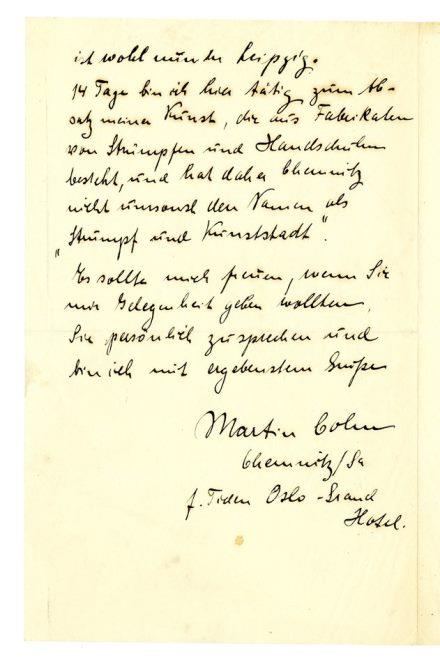 ist wohl nun der Leipzig.
14 Tage bin ich hier tätig zum Ab-
satz meiner Kunst, die aus Fabrikaten
von Strümpfen und Handschuhen
besteht, und hat daher Chemnitz
nicht umsonst den Namen als
„Strumpf und Kunststadt".
Es sollte mich freuen, wenn Sie
mir Gelegenheit geben wollten,
Sie persönlich zu sprechen und
bin ich mit ergebenstem Gruße
Martin Cohn
Chemnitz/Sa
f. Tiden Oslo - Grand
Hotel.